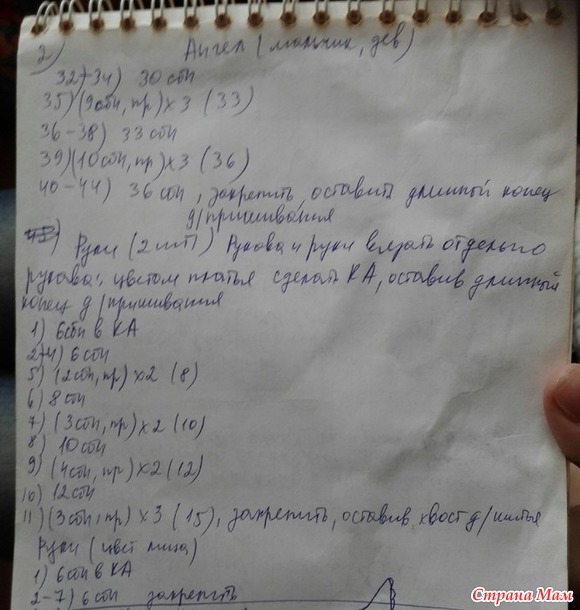 2) Ангел (мальчик, дев)
32-34) 30 сбн
35) (9сбн, пр) х 3 (33)
36-38) 33 сбн
39) (10сбн, пр) х 3 (36)
40-44) 36 сбн, закрепить, оставить длинный конец
д/пришивания
Руки (2 шт) Рукава и руки вязать отдельно
рукава: цветом платья сделать КА, оставив длинный
конец д/пришивания
1) 6сбн в КА
2-4) 6 сбн
5) (2сбн, пр) х2 (8)
6) 8 сбн
7) (3сбн, пр) х2 (10)
8) 10 сбн
9) (4сбн, пр) х2 (12)
10) 12 сбн
11) (3сбн, пр) х 3 (15), закрепить, оставив хвост д/шитья
Руки (цвет лица)
1) 6сбн в КА
2-7) 6 сбн закрепить
Страна Мам